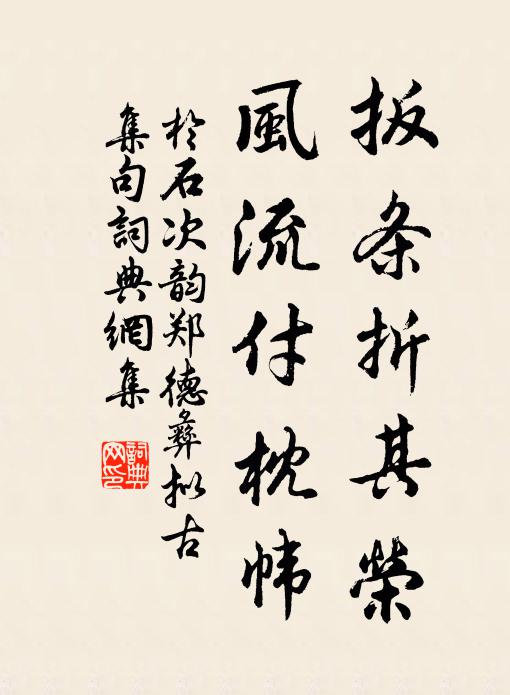 扳条折其榮
風流付枕帏
於石次韵郑德彝拟古
集句詞典網集
詞典網印